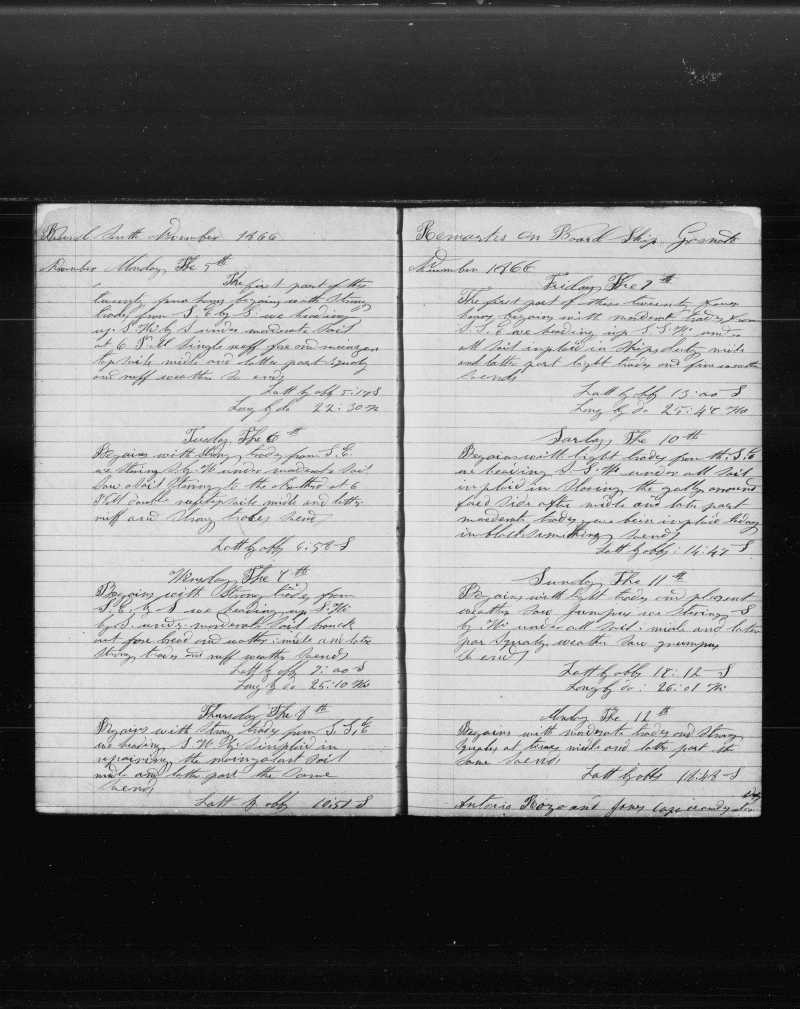 Bound South November 1866
November Monday The 5th
The first part of this
twenty four hours begains with strong
trades from S.E. by E. we heading
up S.W. by S under moderate sail
at 6 P.M. single reff fore and
topsails midle and latter part squaly
and ruff weather So ends
Latt by obs 5:14 S
Long by do 22:30 W
Tuesday The 6th
Begains with strong trades from S.E.
we stering S. by W. under moderate sail
saw a sail stering to the at 6
P.M. double reef topsails midle and latter
ruff and strong trades So ends
Latt by obs 6:58 S
Wensday The 7th
Begains with strong trades from
S.E. by S we heading up S.W.
by S. under moderate sail
out fore bread and water: midle and later
strong trades and ruff weather So ends
Latt by obs 9:00 S
Long by do 25:10 W
Thursday The 8th
Begains with strong trades from S.S.E
we heading S.W. by S inploid in
repairing the sail
midle and later part the same
So ends
Latt by obs 10:51 S
Remarks on Board Ship
November 1866
Friday The 9th
The first part of these twenty four
hours begains with moderate trades from
S.S.E we heading up S.S.W. under
all sail inploid in ships duty midle
and latter part light trades and fine weather
So ends
Latt by obs 13:00 S
Long by do 25:42 W
The 10th
Begains with light trades from the S.E
we heading S.S.W. under all sail
inploid in the
side after midle and late part
moderate trades we been inploid
in blacksmithing So ends
Latt by obs: 14:49 S
Sunday The 11th
Begains with light trades and plesent
weather saw we stering S
by W. under all sail: midle and later
par squaly weather saw grumpus
So ends
Latt by obs 18:12 S
Long by do: 26:01 W
Monday The 12th
Begains with moderate trades and strong
squales at times midle and later part the
same So ends
Latt by obs 18:48 S
Antonio and